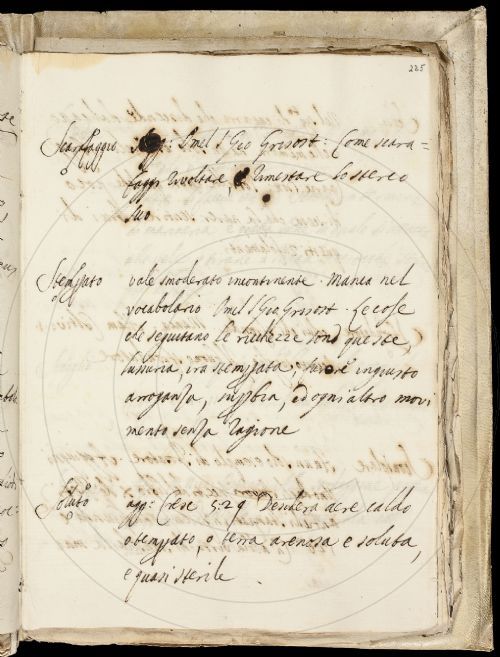 225
Scarafaggio agg: Omel S Gio Grisost: Come scara=
faggi rivoltare, e rimestare lo sterco
suo
Stempato vale smoderato incontinente. Manca nel
vocabolario. Omel S Gio Grisost. Le cose
che seguitano le richezze sono queste,
lussuria, ira stempata, furore ingiusto
arroganza, supbia, ed ogni altro movi
mento senza ragione
Soluto agg: Cresc 5:29 Desidera aere caldo
o tempato, o terra arenosa e soluta,
e quasi sterile.